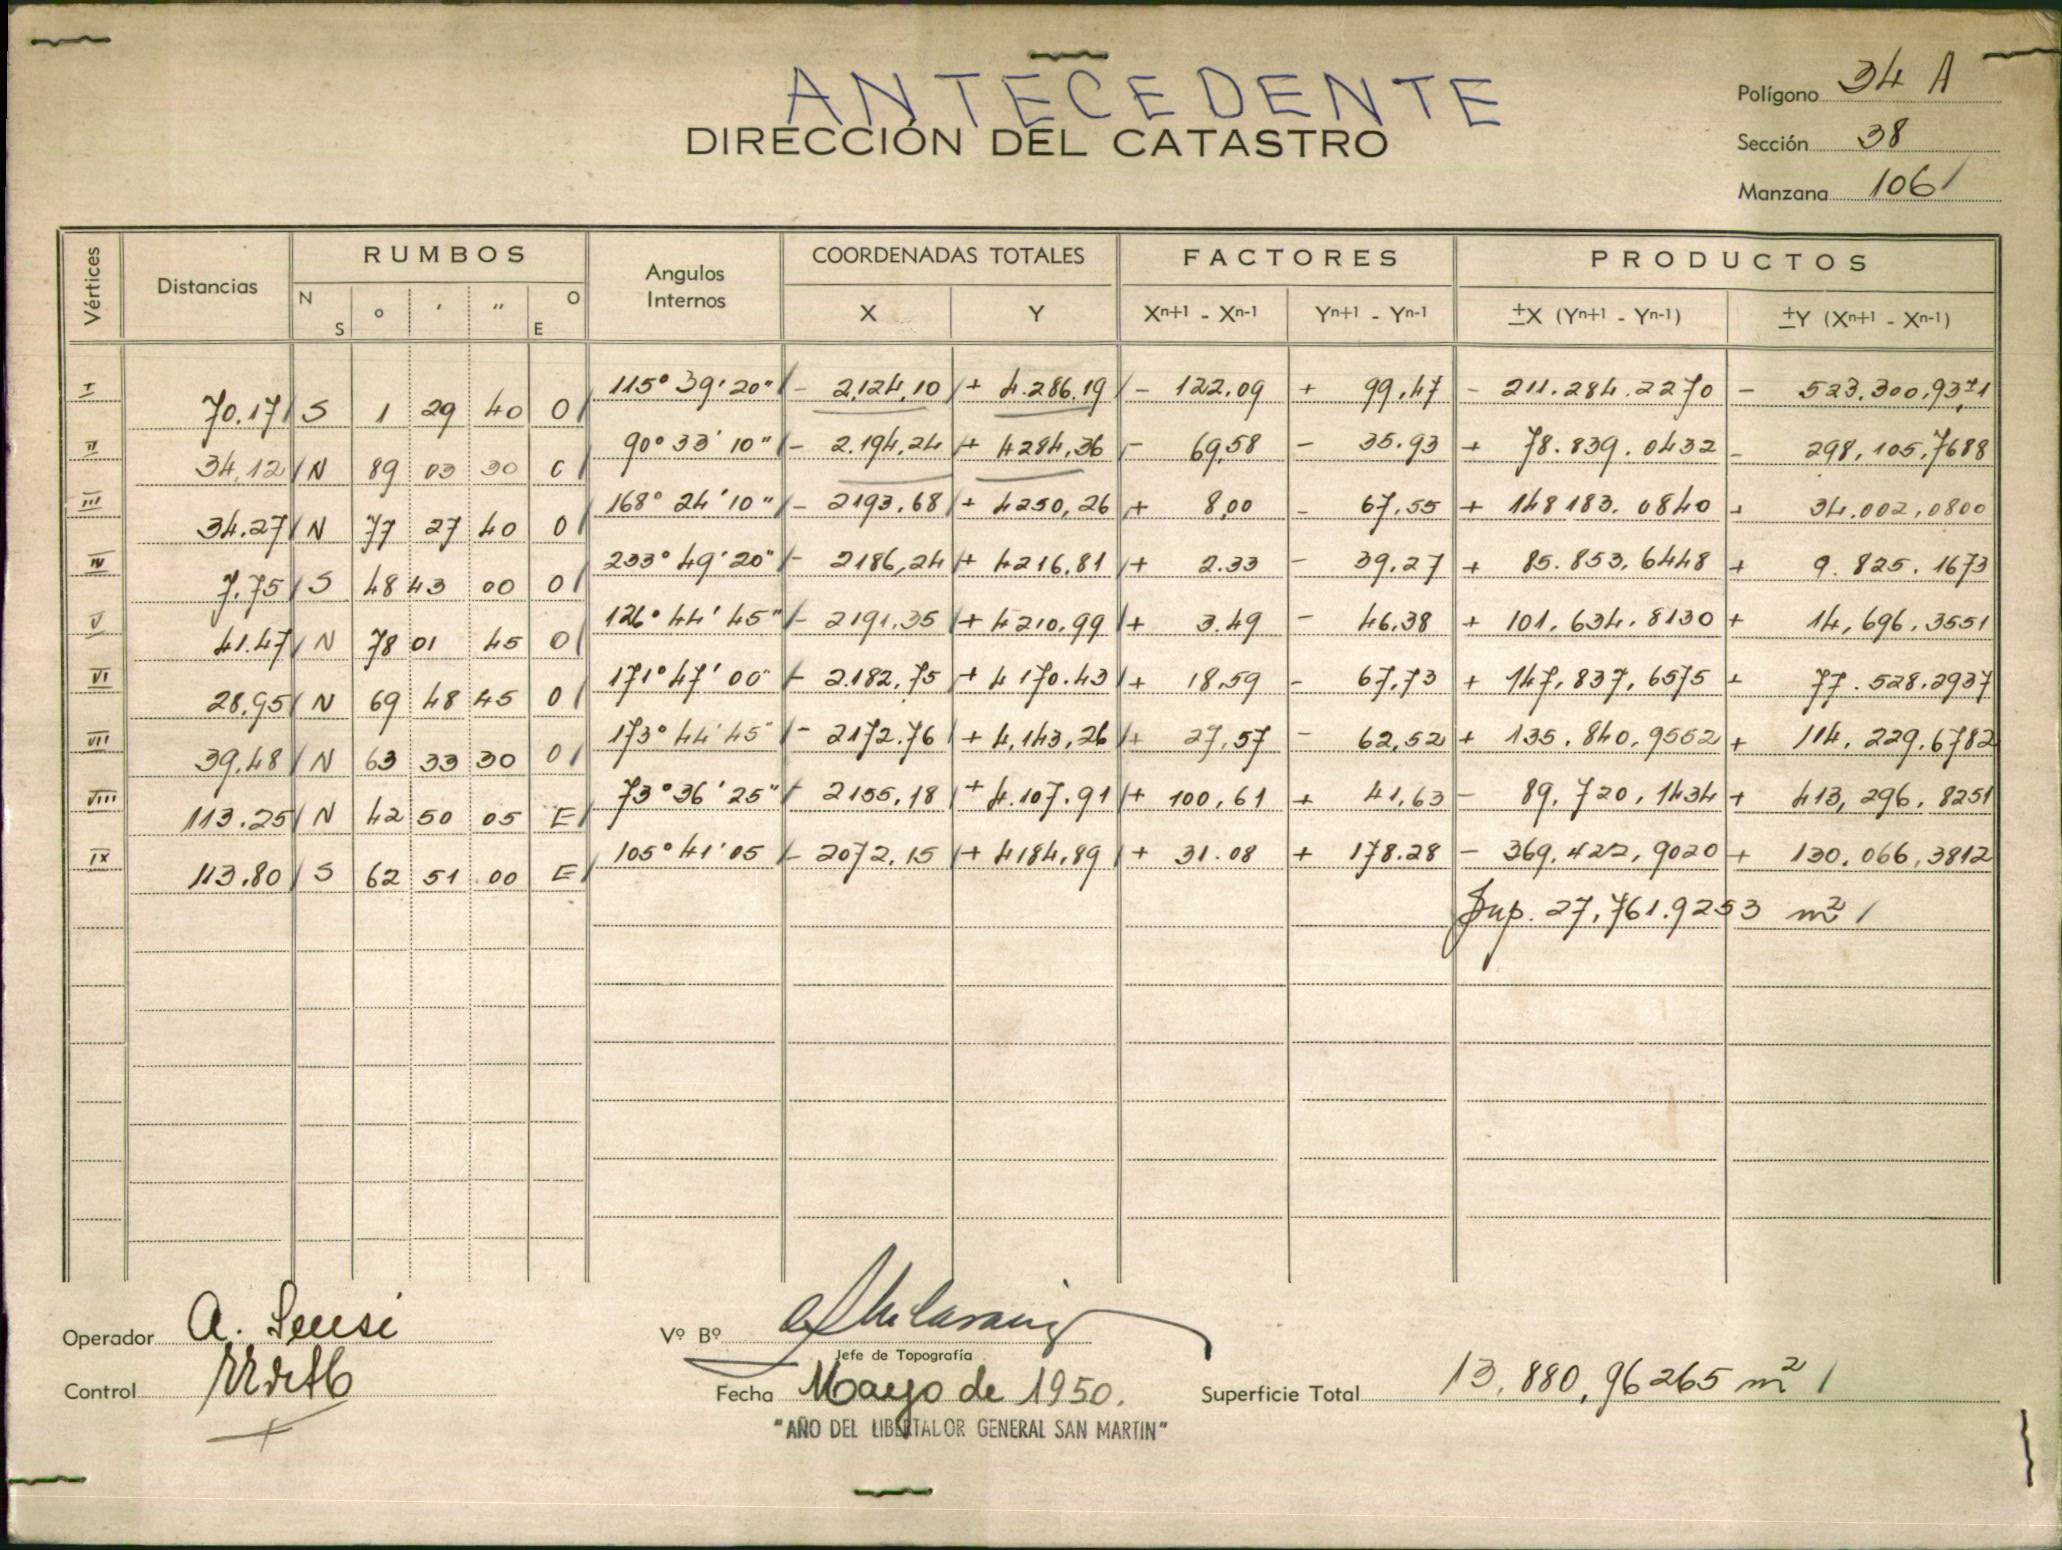 ANTECEDENTE
DIRECCIÓN DEL CATASTRO
Polígono 34 A
Sección 38
Manzana 106 /
Vértices Distancias RUMBOS Angulos Internos COORDENADAS TOTALES FACTORES PRODUCTOS
N S ° ' " O E X Y Xn+1 - Xn-1 Yn+1 - Yn-1 ±X (Yn+1 - Yn-1) ±Y (Xn+1 - Xn-1)
I 70.17 / S 1 29 40 O / 115° 39' 20" / - 2.124,10 / + 4.286.19 / - 122.09 + 99,47 - 211.284.2270 - 523.300,9371
II 34,12 / N 89 03 30 O / 90° 33' 10" / - 2.194,24 / + 4284,36 / - 69,58 - 35.93 + 78.839.0432 - 298,105,7688
III 34.27 / N 77 27 40 O / 168° 24' 10" / - 2193.68 / + 4250,26 / + 8,00 - 67,55 + 148183.0840 + 34.002,0800
IV 7,75 / S 48 43 00 O / 233° 49' 20" / - 2186,24 / + 4216.81 / + 2.33 - 39,27 + 85.853,6448 + 9.825.1673
V 41.47 / N 78 01 45 O / 126° 44' 45" / - 2191,35 / + 4210,99 / + 3.49 - 46,38 + 101.634.8130 + 14,696,3551
VI 28,95 / N 69 48 45 O / 171° 47' 00" / - 2.182,75 / + 4170.43 / + 18,59 - 67,73 + 147,837,6575 + 77.528.2937
VII 39,48 / N 63 33 30 O / 173° 44' 45" / - 2172.76 / + 4,143,26 / + 27,57 - 62,52 + 135.840,9552 + 114.229.6782
VIII 113.25 / N 42 50 05 E / 73° 36' 25" / - 2155,18 / + 4.107.91 / + 100,61 + 41,63 - 89,720,1434 + 413,296,8251
IX 113.80 / S 62 51 00 E / 105° 41' 05 / - 2072,15 / + 4184,89 / + 31.08 + 178.28 - 369,422,9020 + 130,066,3812
Sup. 27,761.9253 m² /
Operador A. Sensi
Vº Bº
Jefe de Topografía
Control
Fecha Mayo de 1950.
Superficie Total 13,880,96265 m² /
"AÑO DEL LIBERTADOR GENERAL SAN MARTIN"